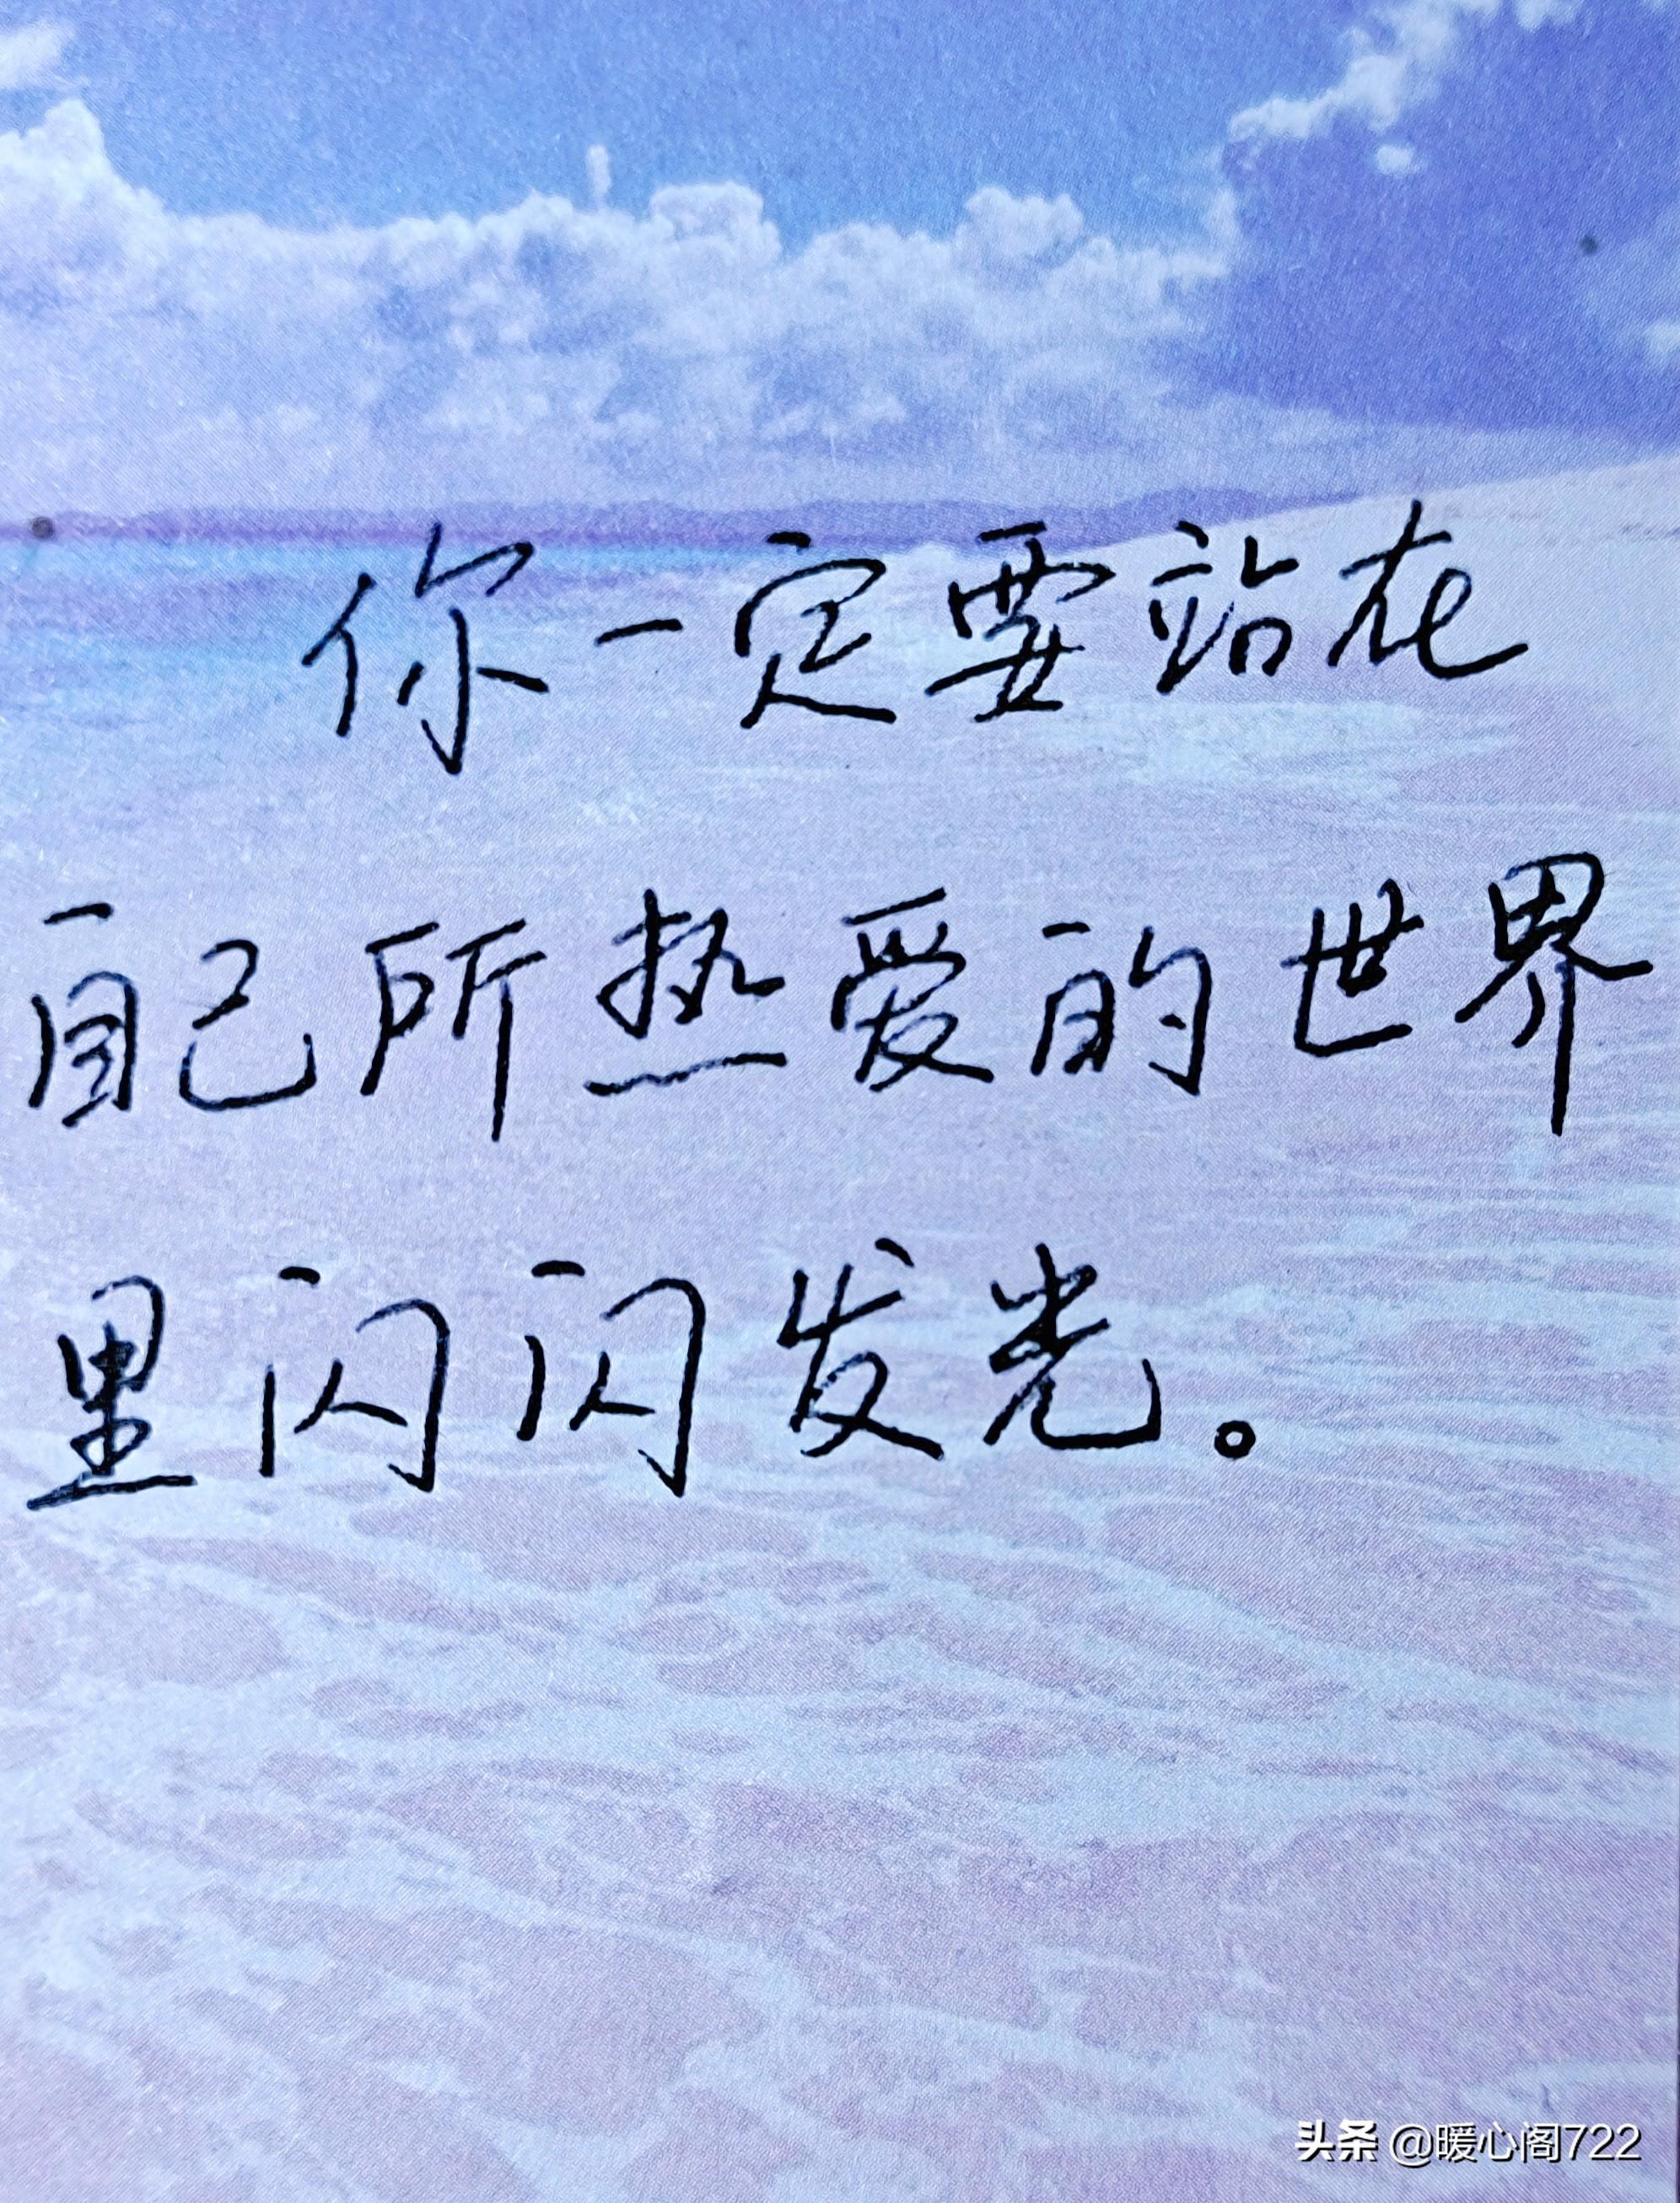 你一定要站在
自己所热爱的世界
里闪闪发光。
头条 @暖心阁722